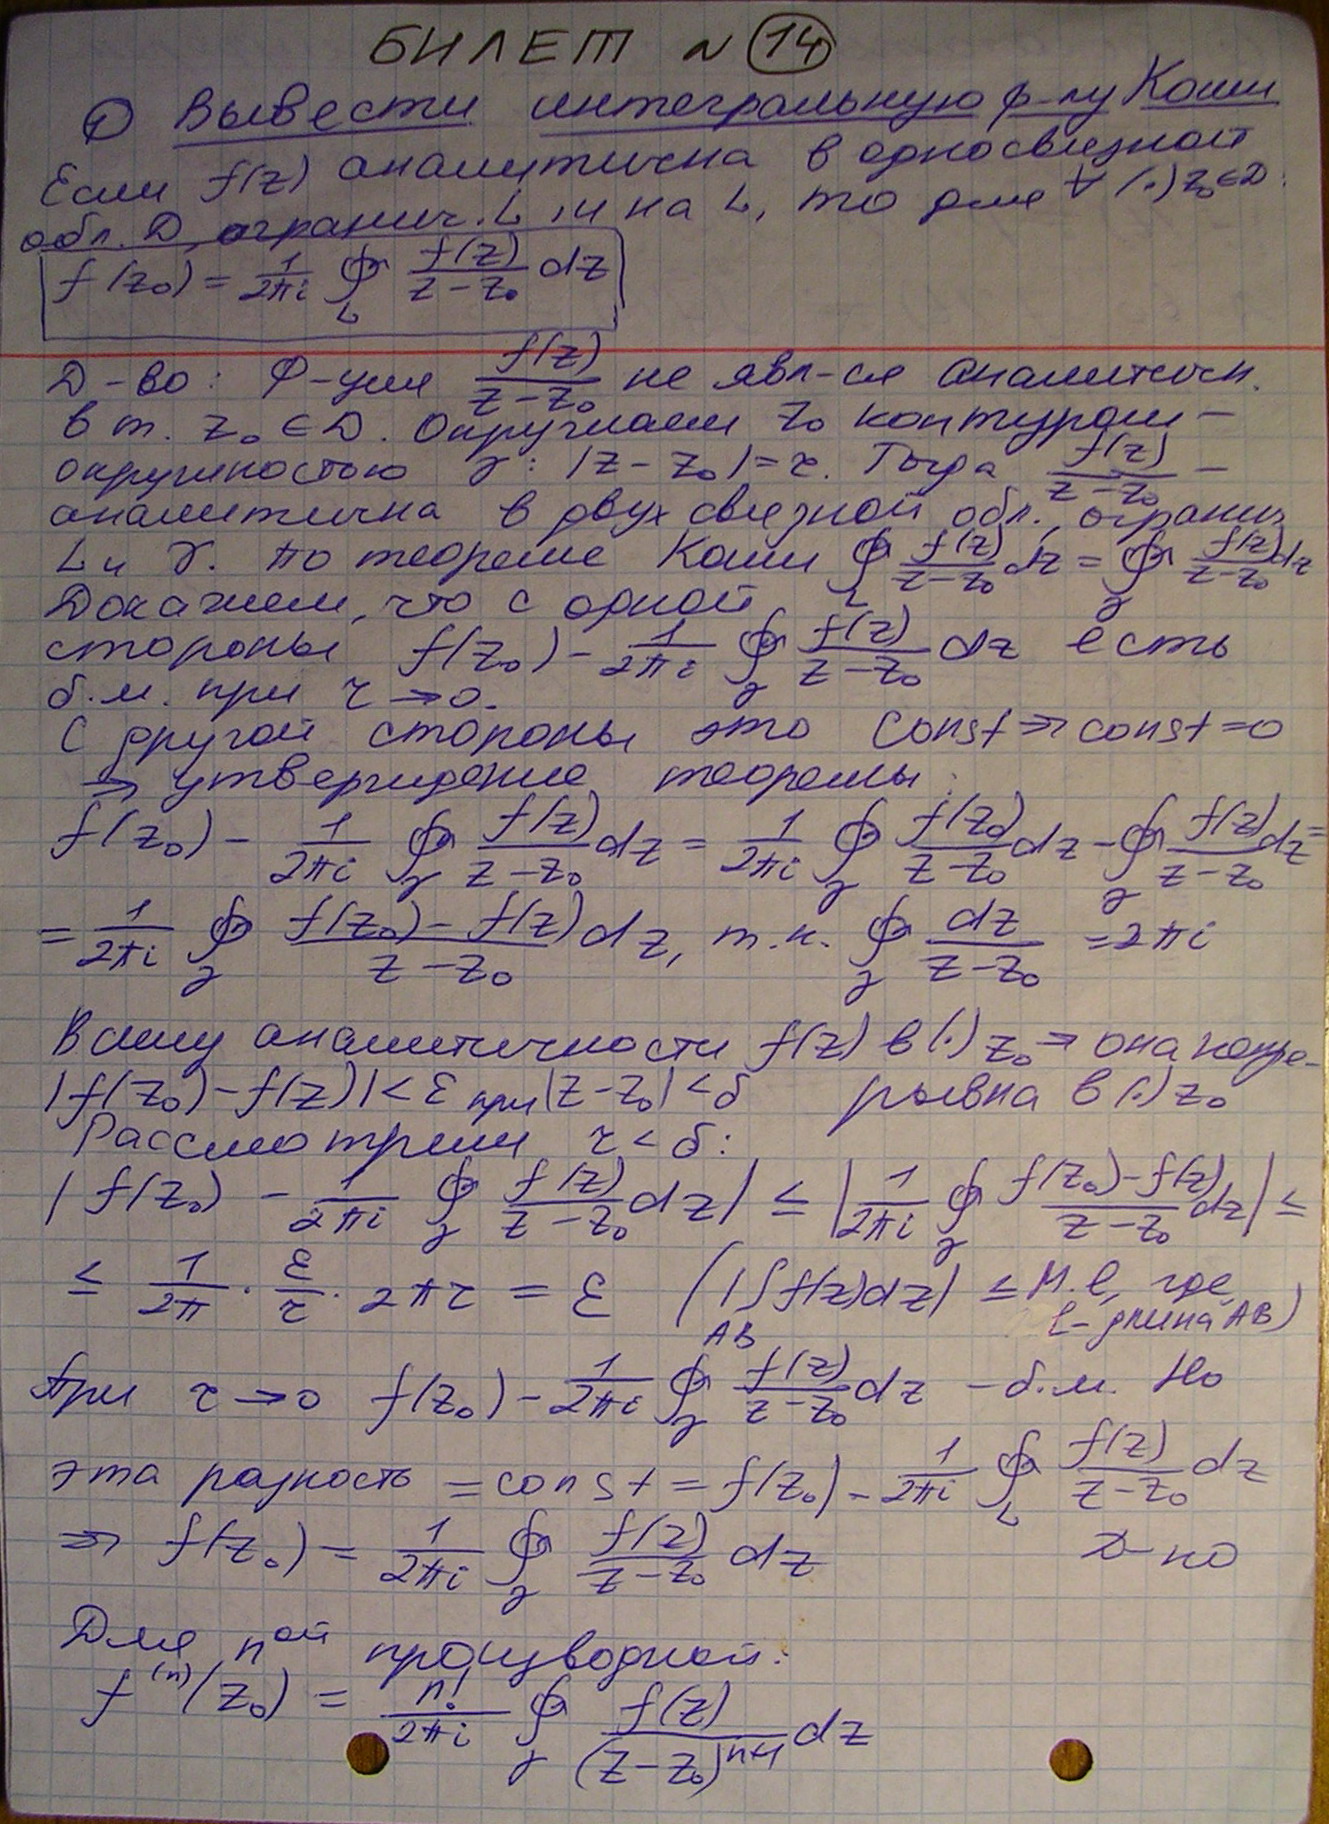 БИЛЕТ N 14
① Вывести интегральную ф-лу Коши
Если f(z) аналитична в односвязной
обл. D, огранич. L, и на L, то для ∀ (.) z₀∈D:
f(z₀) = 1/2πi ∮_L f(z)/(z-z₀) dz
Д-во: Ф-ция f(z)/(z-z₀) не явл-ся аналитичн.
в т. z₀∈D. Окружаем z₀ контуром-
окружностью γ: |z-z₀|=r. Тогда f(z)/(z-z₀) -
аналитична в двухсвязной обл., огранич
L и γ. По теореме Коши ∮_L f(z)/(z-z₀) dz = ∮_γ f(z)/(z-z₀) dz
Докажем, что с одной
стороны f(z₀) - 1/2πi ∮_γ f(z)/(z-z₀) dz есть
б.м. при r→0.
С другой стороны это const ⇒ const=0
⇒ утверждение теоремы:
f(z₀) - 1/2πi ∮_γ f(z)/(z-z₀) dz = 1/2πi ∮_γ f(z₀)/(z-z₀) dz - ∮_γ f(z)/(z-z₀) dz =
= 1/2πi ∮_γ (f(z₀)-f(z))/(z-z₀) dz, т.к. ∮_γ dz/(z-z₀) = 2πi
В силу аналитичности f(z) в (.) z₀ ⇒ она непре-
|f(z₀)-f(z)|<ε при |z-z₀|<δ рывна в (.) z₀
Рассмотрим r<δ:
|f(z₀) - 1/2πi ∮_γ f(z)/(z-z₀) dz| ≤ |1/2πi ∮_γ (f(z₀)-f(z))/(z-z₀) dz| ≤
≤ 1/2π · ε/r · 2πr = ε (|∫_AB f(z)dz| ≤ M·l, где
l - длина AB)
При r→0 f(z₀) - 1/2πi ∮_γ f(z)/(z-z₀) dz - б.м. Но
эта разность = const = f(z₀) - 1/2πi ∮_L f(z)/(z-z₀) dz
⇒ f(z₀) = 1/2πi ∮_γ f(z)/(z-z₀) dz Д-но
Для nой производной:
f⁽ⁿ⁾(z₀) = n!/2πi ∮_γ f(z)/(z-z₀)ⁿ⁺¹ dz